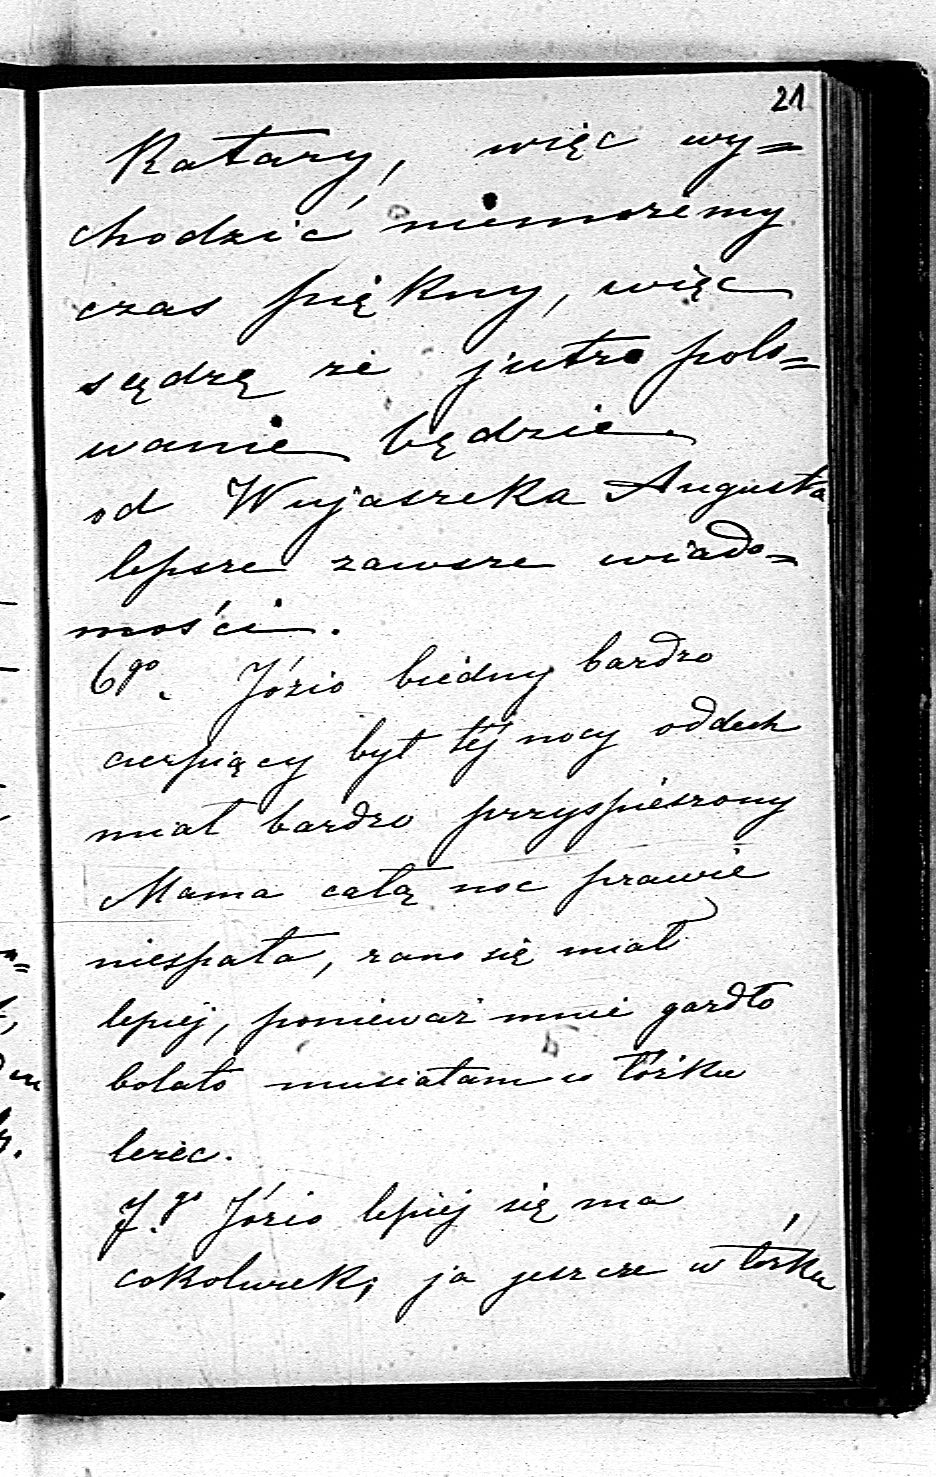 21
Katary, więc wy=
chodzić niemożemy
czas piękny, więc
sądzę że jutro polo=
wanie będzie.
od Wujaszka Augusta
lepsze zawsze wiado=
mości.
6go. Józio biédny bardzo
cierpiący był téj nocy oddech
miał bardzo przyspieszony
Mama całą noc prawie
niespała, rano się miał
lepiej, ponieważ mnie gardło
bolało musiałam w łóżku
leżéc.
7.go Józio lepiej się ma
cokolwiek; ja jeszcze w łóżku